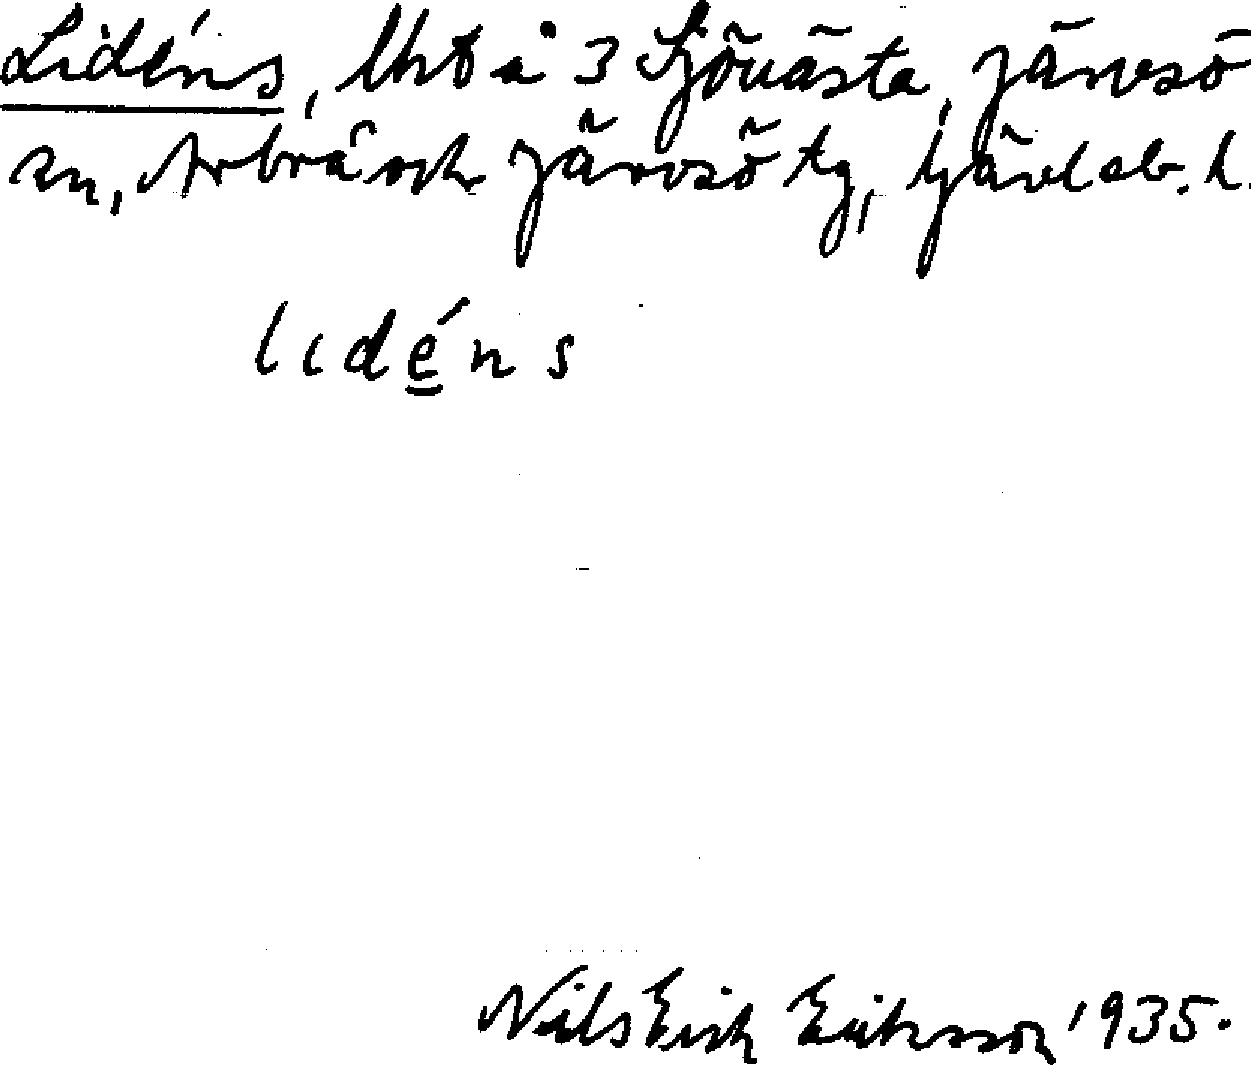 Lidéns, lht å 3 Sjövästa, Järvsö
sn, Arbrå och Järvsö tg, Gävleb. l.
lidéns
Nils Erik Eriksson 1935.